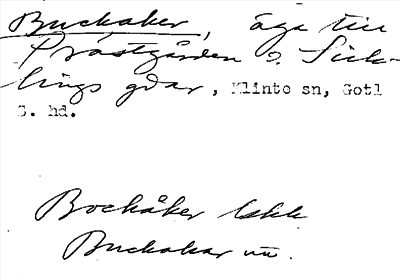 Buckaker, äga till
Prästgården o. Sick-
lings gdar, Klinte sn, Gotl
S. hd.
Bockåker Ishk
Buckakar un.